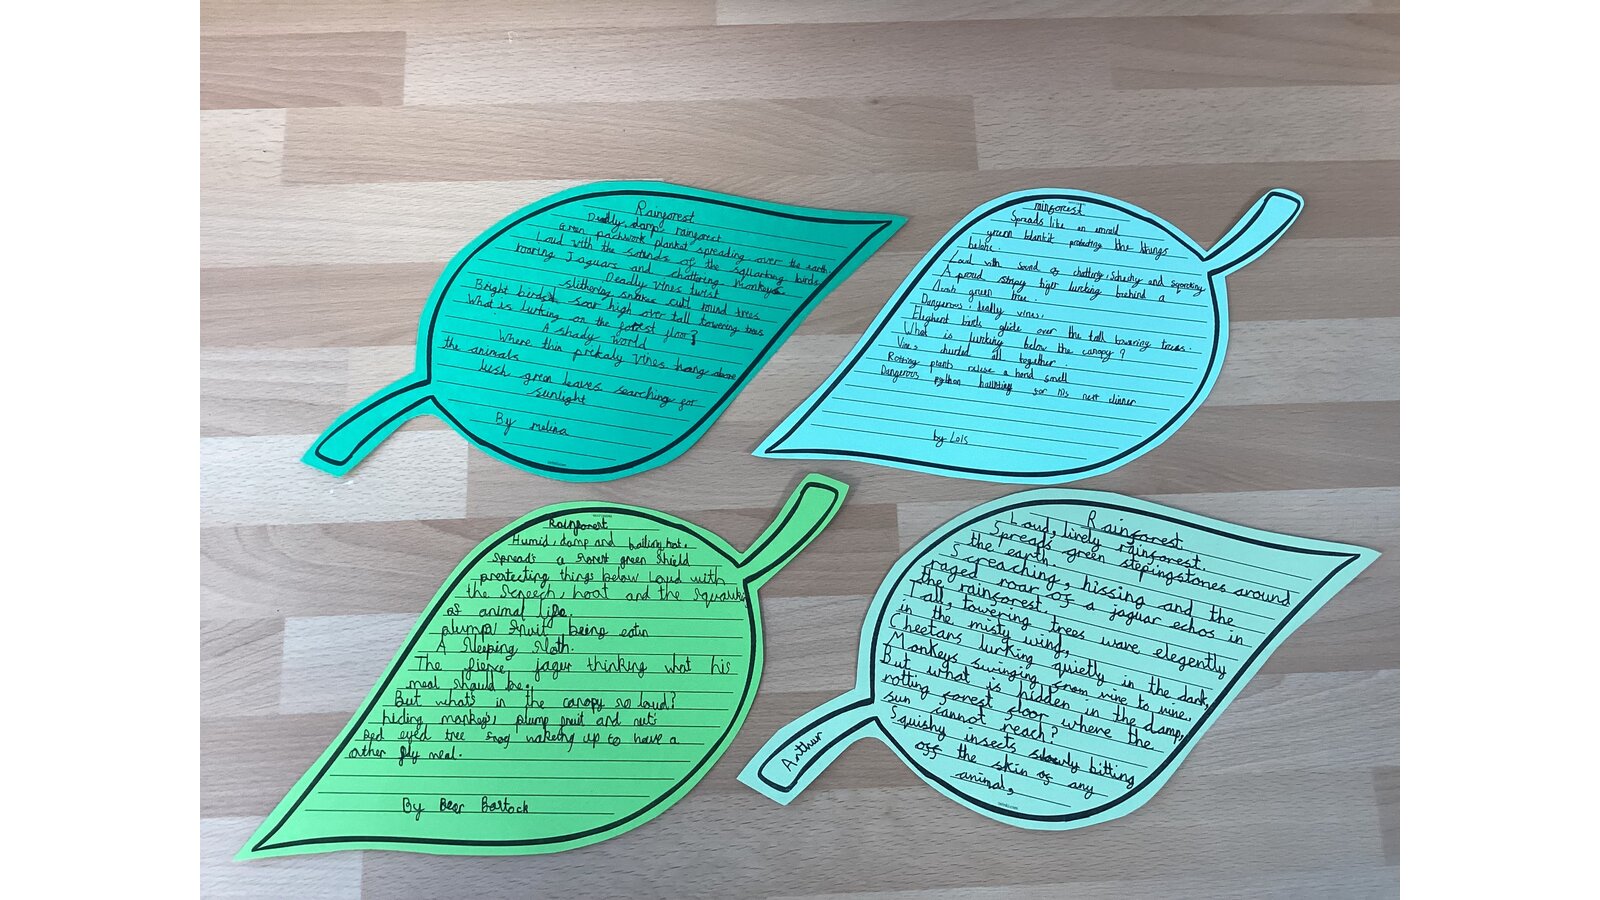 Rainforest
Deadly, damp rainforest
Green patchwork plankot spreading over the earth.
Loud with the sounds of the squarking birds
roaring Jaguars and chattering monkeys
Deadly vines twist
slithering snakes curl round trees
Bright birds soar high over tall towering trees
What is lurking on the forest floor?
A shady world
Where thin prikaly vines hang above
the animals
lush green leaves searching for
sunlight
By melina
rainforest
Spreads like an emrald
green blankit protecting the things
below.
Loud with sound of chattery, Schechy and squarking
A proud stripy tiger lurking behind a
lush green tree.
Dangerous, deadly vines.
Eleghent birds glide over the tall towering trees.
What is lurking below the canopy?
Vines all together
Rotting plants reluse a smell
Dangerous python for his next dinner
by Lois
Rainforest
Humid, damp and boiling hot,
spreads a forest green shield
protecting things below Loud with
the screech, hoot and the Squawks
of animal life.
plump fruit being eatin
A Sleeping Sloth.
The fierce jagur thinking what his
meal should be.
But what's in the canopy so loud?
hiding monkeys, plump fruit and nuts
Red eyed tree frog wakeing up to have a
nother fly meal.
By Bear Bartock
Rainforest
Loud, lively rainforest.
Spreads green stepingstones around
the earth.
Screaching, hissing and the
raged roar of a jaguar echos in
the rainforest.
Tall, towering trees wave elegently
in the misty wind,
Cheetahs lurking quietly in the dark,
Monkeys swinging from vine to vine.
But what is hidden in the damp,
rotting forest floor where the
sun cannot reach?
Squishy insects slowly bitting
off the skin of any
animal,
Arthur